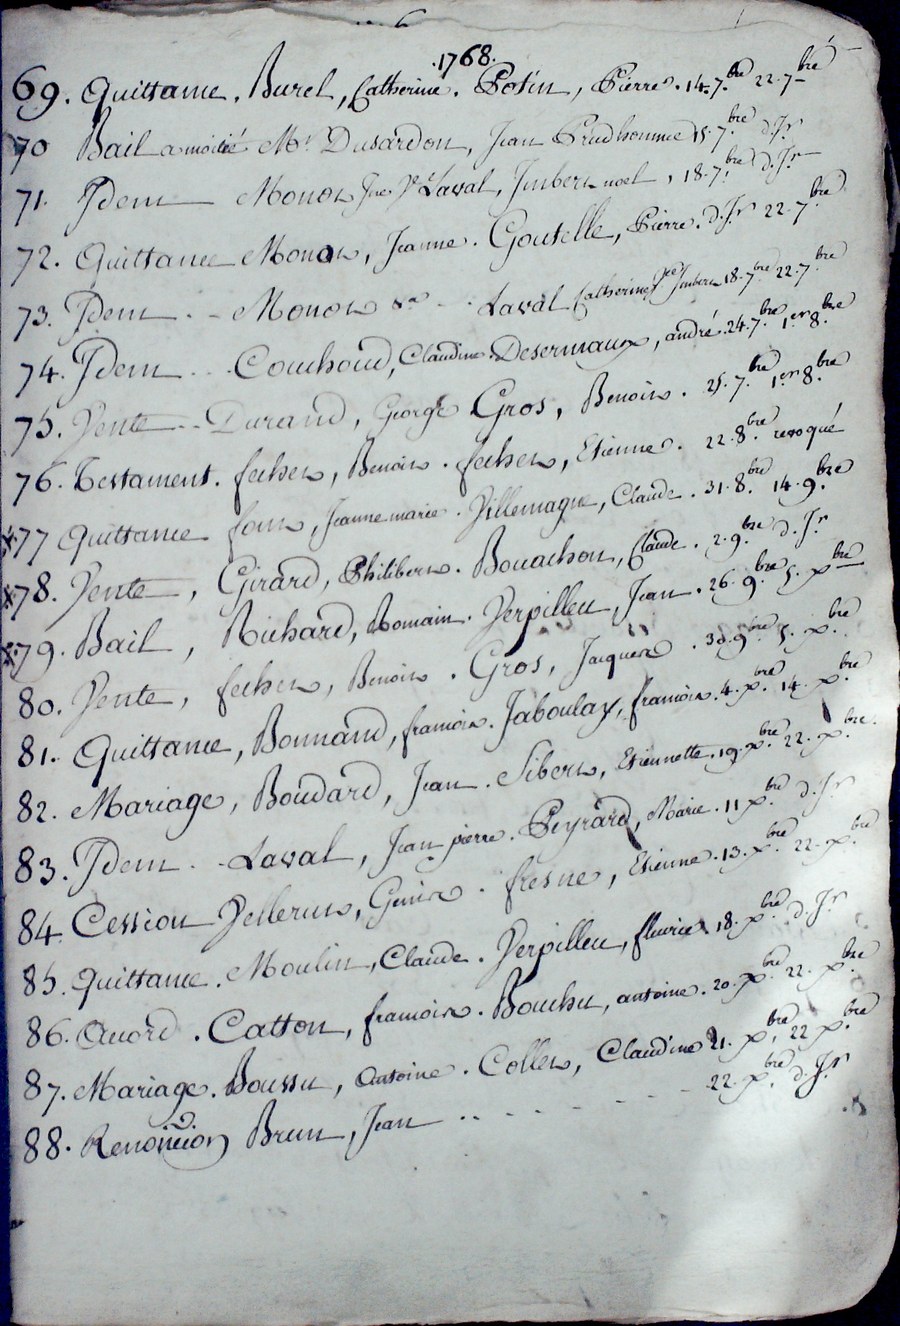 .1768.
69. Quittance, Burel, Catherine. Potin, Pierre. 14. 7.bre 22. 7bre
70 Bail a moitié Mr. Dusardon, Jean Prudhomme 15. 7.bre d. Jr
71. Idem Monot Laval, Imbert noel, 18. 7.bre d. Jr
72. Quittance Monot, Jeanne. Goutelle, Pierre. d. Jr 22. 7.bre
73. Idem .. Monot .. Laval Catherine Imbert 18. 7bre 22. 7.bre
74. Idem .. Couchoud, Claudine. Desermaux, andré. 24. 7.bre 1er 8.bre
75. Vente .. Durand, George. Gros, Benoit. 25. 7.bre 1er 8.bre
76. Testament. fechet, Benoit. fechet, Etienne. 22. 8.bre revoqué
77 Quittance font, Jeanne marie. Villemagne, Claude. 31. 8.bre 14. 9.bre
78. Vente, Girard, Philibert. Bouachon, Claude. 2. 9.bre d. Jr
79. Bail, Richard, Romain. Verpilleu, Jean. 26. 9.bre 5. xbre
80. Vente, fechet, Benoit. Gros, Jacques. 30. 9bre 5. x.bre
81. Quittance, Bonnand, francois. Jaboulay, francois. 4. x.bre 14. x.bre
82. Mariage, Boudard, Jean. Sibert, Etiennette. 19. x.bre 22. x.bre
83. Idem .. Laval, Jean pierre. Peyrard, Marie. 11 x.bre d. Jr
84 Cession Vellerut, Genis. fresne, Etienne. 13. x.bre 22. x.bre
85. Quittance. Moulin, Claude. Verpilleu, fleurie. 18. x.bre d. Jr
86. Accord. Catton, francois. Bouchu, antoine. 20. x.bre 22. x.bre
87. Mariage. Boussu, Antoine. Collet, Claudine 21. x.bre, 22 x.bre
88. Renon̄cion Brun, Jean .. - - - - - - - 22. x.bre d. Jr